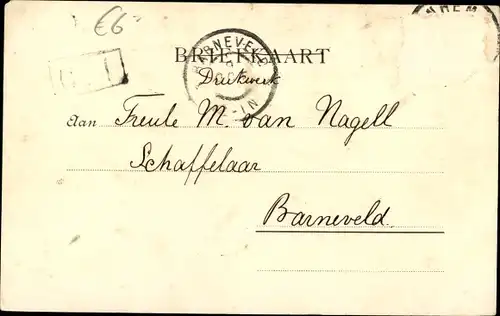 €6
BRIEFKAART
BARNEVELD
Drukwerk
Aan Freule M. van Nagell
Schaffelaar
Barneveld.